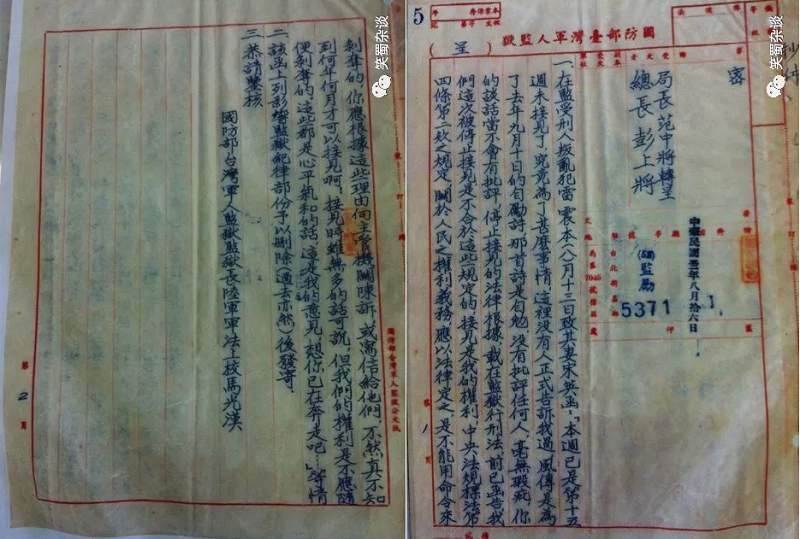 抄件
國防部臺灣軍人監獄
(呈)
5
密
局長 范中將轉呈
總長 彭上將
中華民國 年八月拾六日
監馬
5371
一、在監受刑人叛亂犯雷震本(八)月十三日致其妻宋英函:「本週已是第十五
週未接見了,究竟為了甚麼事情,這裡沒有人正式告訴我過,風傳是為
了去年九月十日的自勵詩,那首詩是自勉,沒有批評任何人,毫無瑕疵,你
的談話當不會有批評,停止接見的法律根據,載在監獄行刑法,前已函告我
們這次被停止接見是不合於這些規定的,接見是我的權利,中央法規標準法第
四條第二款之規定,關於人民之權利義務,應以法律定之,是不能用命令來
第1頁
剝奪的,你應根據這些理由向主管機關陳訴,或寫信給他們,不然真不知
到何年何月才可以接見啊,接見時雖無多的話可說,但我們的權利是不應隨
便剝奪的,這些都是心平氣和的話,這是我的意見,想你已在奔走吧……」等情
二、該函上列影響監獄紀律部份予以刪除(過去亦然)後發寄。
三、恭請鑒核
國防部台灣軍人監獄監獄長陸軍軍法上校馬光漢
國防部台灣軍人監獄公文紙
第2頁
笑蜀杂谈
笑蜀杂谈